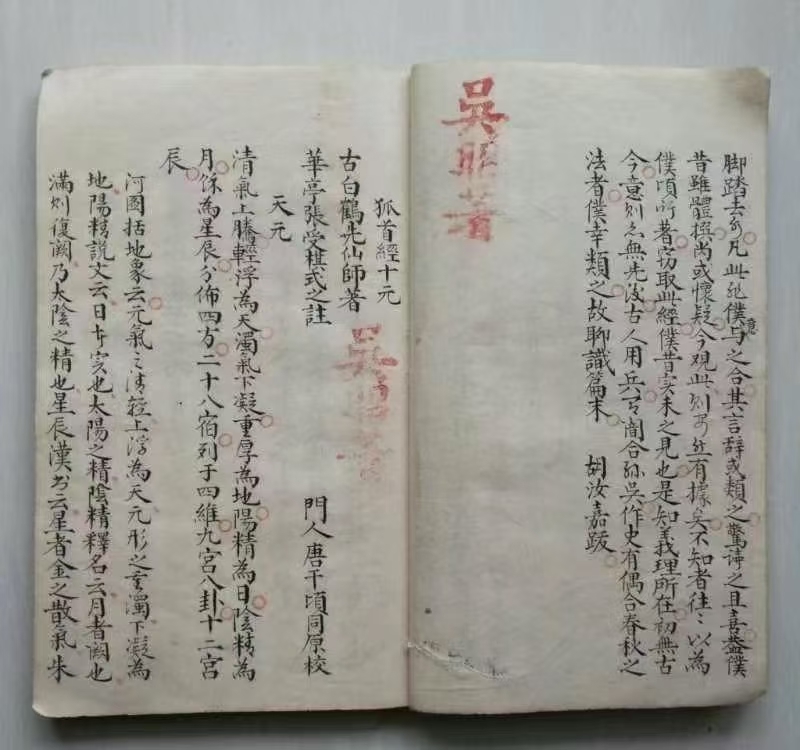 脚踏去分凡此死僕与之合其言辞或類之驚谛之且喜葢僕
意
昔雖體撰尚或懷疑今观此则有據矣不知者往〻以為
僕頃所著窃取此經僕昔实未之見也是知義理所在初無古
今意则么無先後古人用兵有闇合孙吳作史有偶合春秋之
法者僕幸類之故聊識篇末 胡汝嘉跋
吳
著
狐首經十元
古白鶴先仙師著
華亭張受祺式之註 門人唐千頃同原校
吳
天元
清氣上騰輕浮為天濁氣下凝重厚為地陽精為日陰精為
月餘為星辰分佈四方二十八宿列于四維九宮八卦十二宮
辰
河圖括地象云元氣之清輕上浮為天元形之重濁下凝為
地陽精説文云日本实也太陽之精陰精釋名云月者阙也
滿则復阙乃太陰之精也星辰漢书云星者金之散氣朱